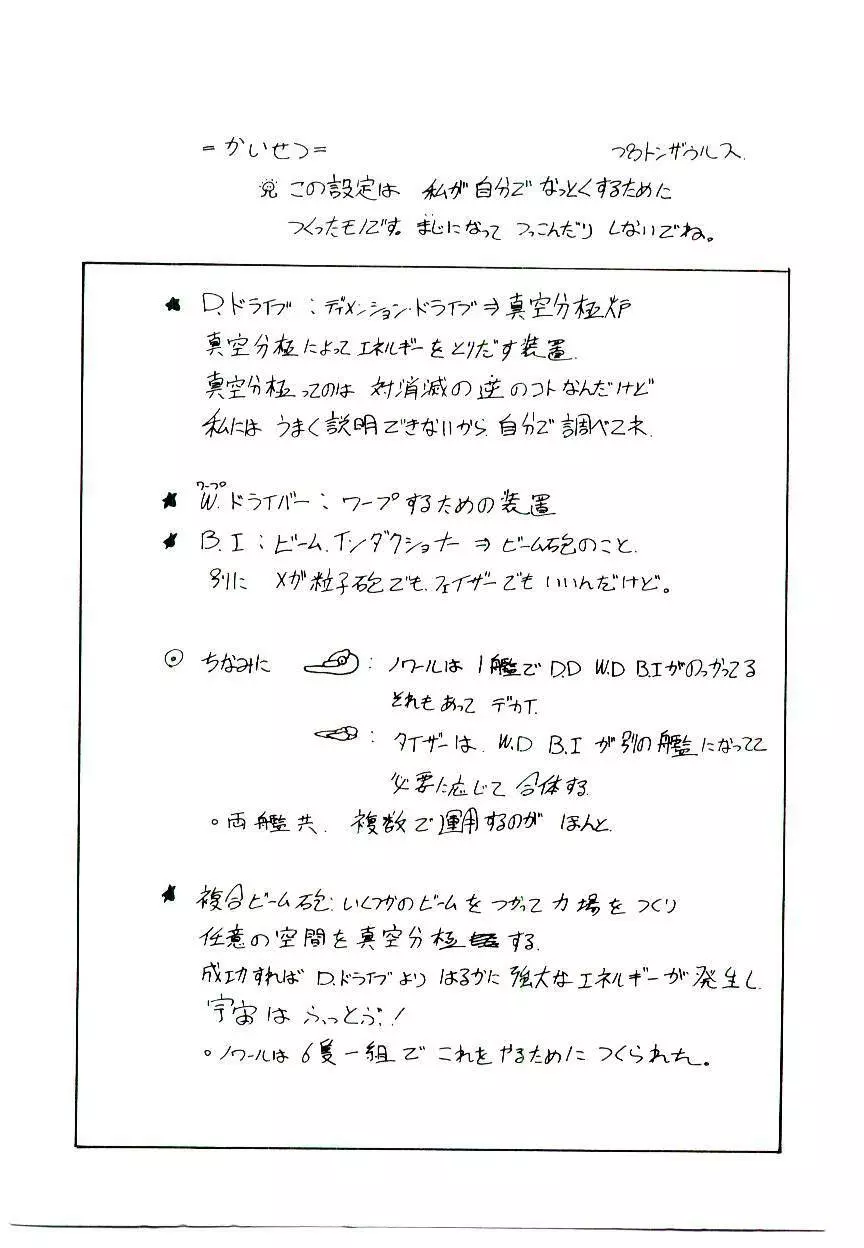 = かいせつ =
つるトンザウルス.
※ この設定は 私が自分で なっとくするために
つくったモノです。まじになって つっこんだり しないでね。
★ D.ドライブ : ディメンション・ドライブ⇒真空分極炉
真空分極によって エネルギーをとりだす装置.
真空分極ってのは 対消滅の逆のコトなんだけど
私には うまく説明できないから. 自分で調べてネ.
ワープ
★ W.ドライバー : ワープするための装置
★ B.I : ビーム.インダクショナー ⇒ ビーム砲のこと.
別に メガ粒子砲でも.フェイザーでも いいんだけど。
⊙ ちなみに : ノワールは 1艦で D.D W.D B.I がのっかってる
それもあって デカイ.
: タイザーは. W.D B.I が別の艦になってて
必要に応じて 合体する.
◦ 両艦共. 複数で運用するのが ほんと.
★ 複合ビーム砲:いくつかのビームをつかって力場をつくり
任意の空間を真空分極する.
成功すれば D.ドライブより はるかに強大なエネルギーが発生し.
宇宙は ふっとぶ!
◦ ノワールは 6隻一組で これをやるために つくられた。